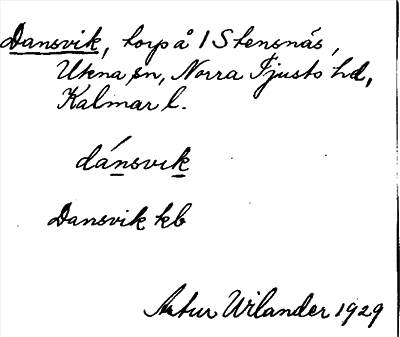 Dansvik, torp å 1 Stensnäs,
Ukna sn, Norra Tjusts hd,
Kalmar l.
dánsvık
Dansvik kb
Artur Wilander 1929